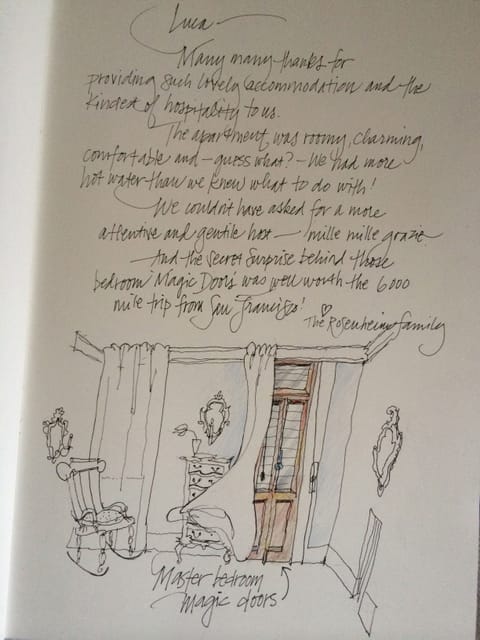 Luca —
Many many thanks for
providing such lovely accommodation and the
kindest of hospitality to us.
The apartment was roomy, charming,
comfortable and – guess what? – We had more
hot water than we knew what to do with!
We couldn't have asked for a more
attentive and gentile host — mille mille grazie
And the secret surprise behind those
bedroom "Magic Doors" was well worth the 6000
mile trip from San Francisco!
The Rosenheim family
Master bedroom
magic doors